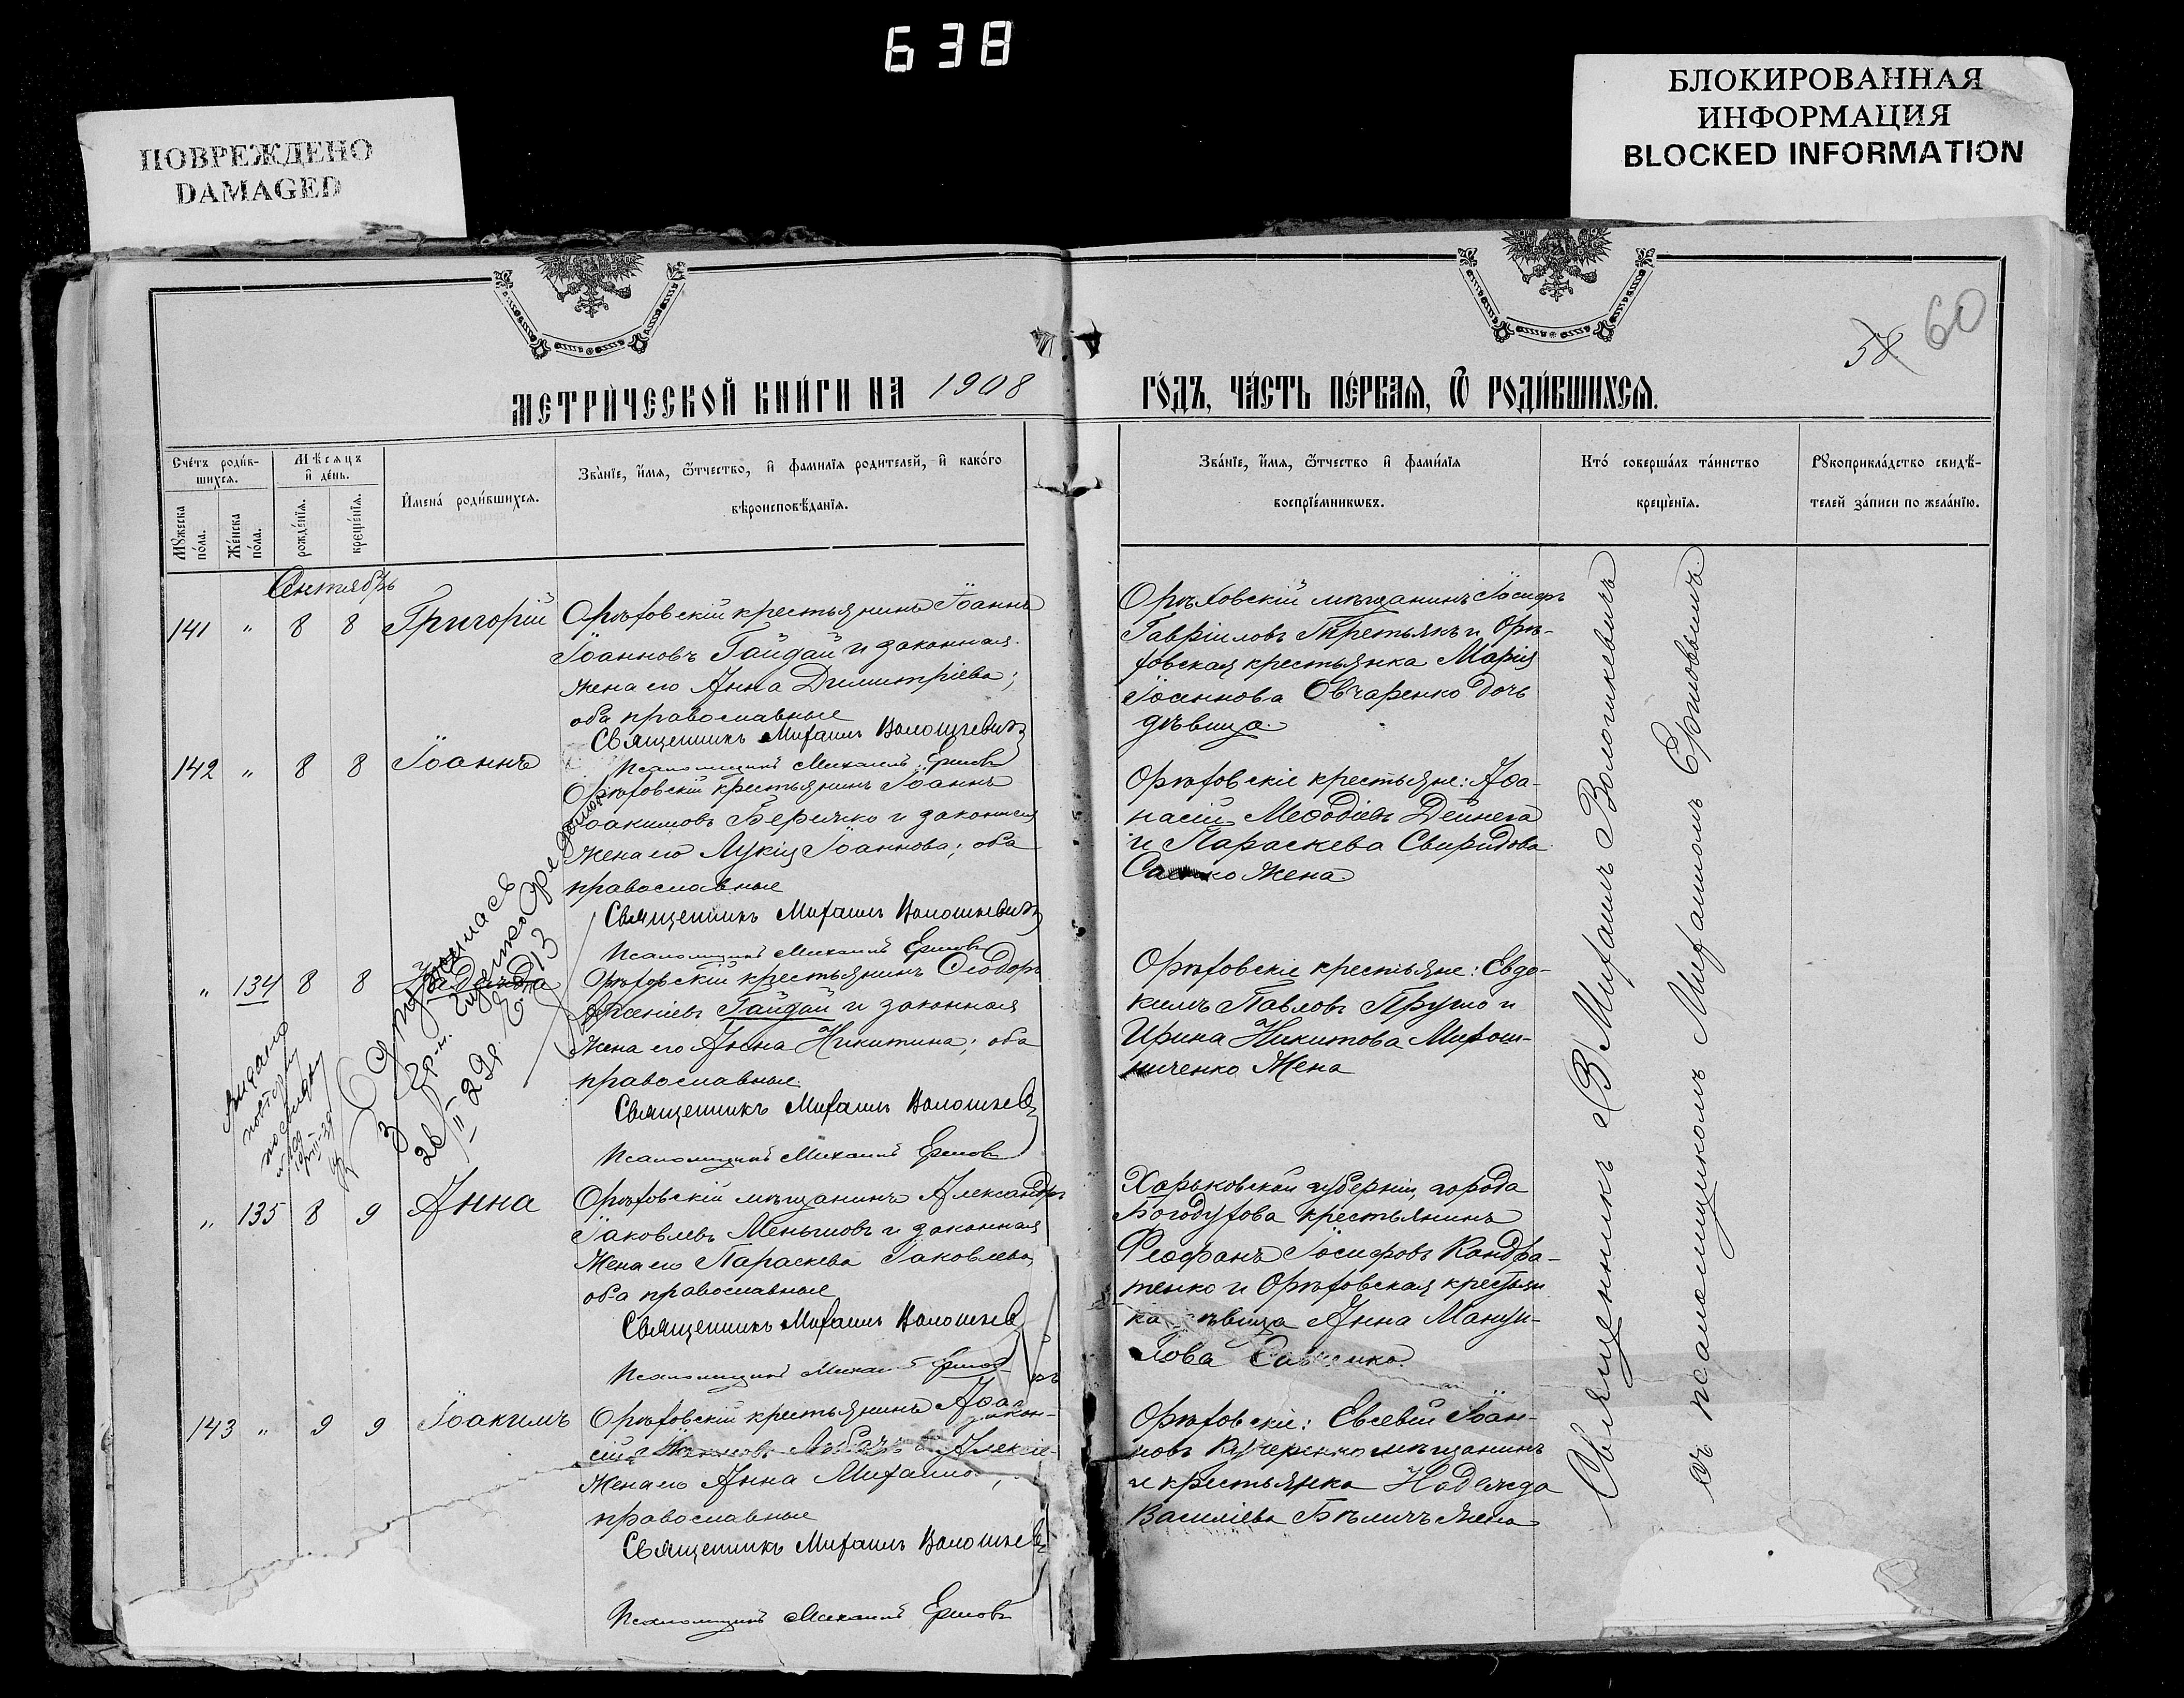 638
ПОВРЕЖДЕНО
DAMAGED
БЛОКИРОВАННАЯ
ИНФОРМАЦИЯ
BLOCKED INFORMATION
58 60
МЕТРИ́ЧЕСКОЙ КНИ́ГИ НА 1908 ГО́ДЪ, ЧА́СТЬ ПЕ́РВАѦ, Ѿ РОДИ́ВШИХСѦ.
Сче́тъ роди́в-
шихсѧ.
Мѣ́сѧцъ
и҆ де́нь.
Мꙋжеска
по́ла.
Же́нска
по́ла.
рожде́нїѧ.
креще́нїѧ.
И҆мена̀ роди́вшихсѧ.
Зва́нїе, и҆́мѧ, ѻ҆́тчество, и҆ фами́лїѧ родителей, и҆ како́го
вѣроисповѣ́данїѧ.
Зва́нїе, и҆́мѧ, ѻ҆́тчество и҆ фами́лїѧ
воспрїе́мникѡвъ.
Кто̀ соверша́лъ та́инство
креще́нїѧ.
Рꙋкоприкла́дство свидѣ́-
телей за́писи по жела́нїю.
Сентябрь
141 " 8 8 Григорій
Орѣховскій крестьянинъ Іоаннъ
Іоанновъ Гайдай и законная
жена его Анна Димитріева;
оба православные
Священникъ Михаилъ Волошкевичъ
Псаломщикъ Михаилъ Ершовъ
Орѣховскій мѣщанинъ Іосифъ
Гавріиловъ Третьякъ и Орѣ-
ховская крестьянка Марія
Іоаннова Овчаренко дочь
дѣвица
142 " 8 8 Іоаннъ
Орѣховскій крестьянинъ Іоаннъ
Іоакимовъ Бережко и законная
жена его Лукія Іоаннова; оба
православные
Священникъ Михаилъ Волошкевичъ
Псаломщикъ Михаилъ Ершовъ
Орѣховскіе крестьяне: Аѳа-
насій Меѳодіевъ Дейнега
и Параскева Свиридова
жена
" 134 8 8
Орѣховскій крестьянинъ Ѳеодоръ
Гайдай и законная
жена его Анна Никитина; оба
православные.
Священникъ Михаилъ Волошкев
Псаломщикъ Михаилъ Ершовъ
Орѣховскіе крестьяне: Евдо-
кимъ Павловъ Прушо и
Ирина Никитова Мирош-
ниченко жена
" 135 8 9 Анна
Орѣховскій мѣщанинъ Александръ
Іаковлевъ Меньшовъ и законная
жена его Параскева Іаковлева,
оба православные
Священникъ Михаилъ Волошкев
Псаломщикъ Ершов
Харьковской губерніи, города
Богодухова крестьянинъ
Ѳеофанъ Іосифовъ Кандра-
тенко и Орѣховская крестьян
ка Анна Мануи-
лова
143 " 9 9 Іоакимъ
Орѣховскій крестьянинъ Аѳа
жена его Анна Михаило
православные
Священникъ Михаилъ Волошкев
Псаломщикъ Михаилъ Ершовъ
Орѣховскіе: Евсевій Іоан-
новъ Кучеренко мѣщанинъ
и крестьянка Надежда
Василіева Бѣличъ жена
Священникъ Михаилъ Волошкевичъ
съ псаломщикомъ Михаиломъ Ершовымъ